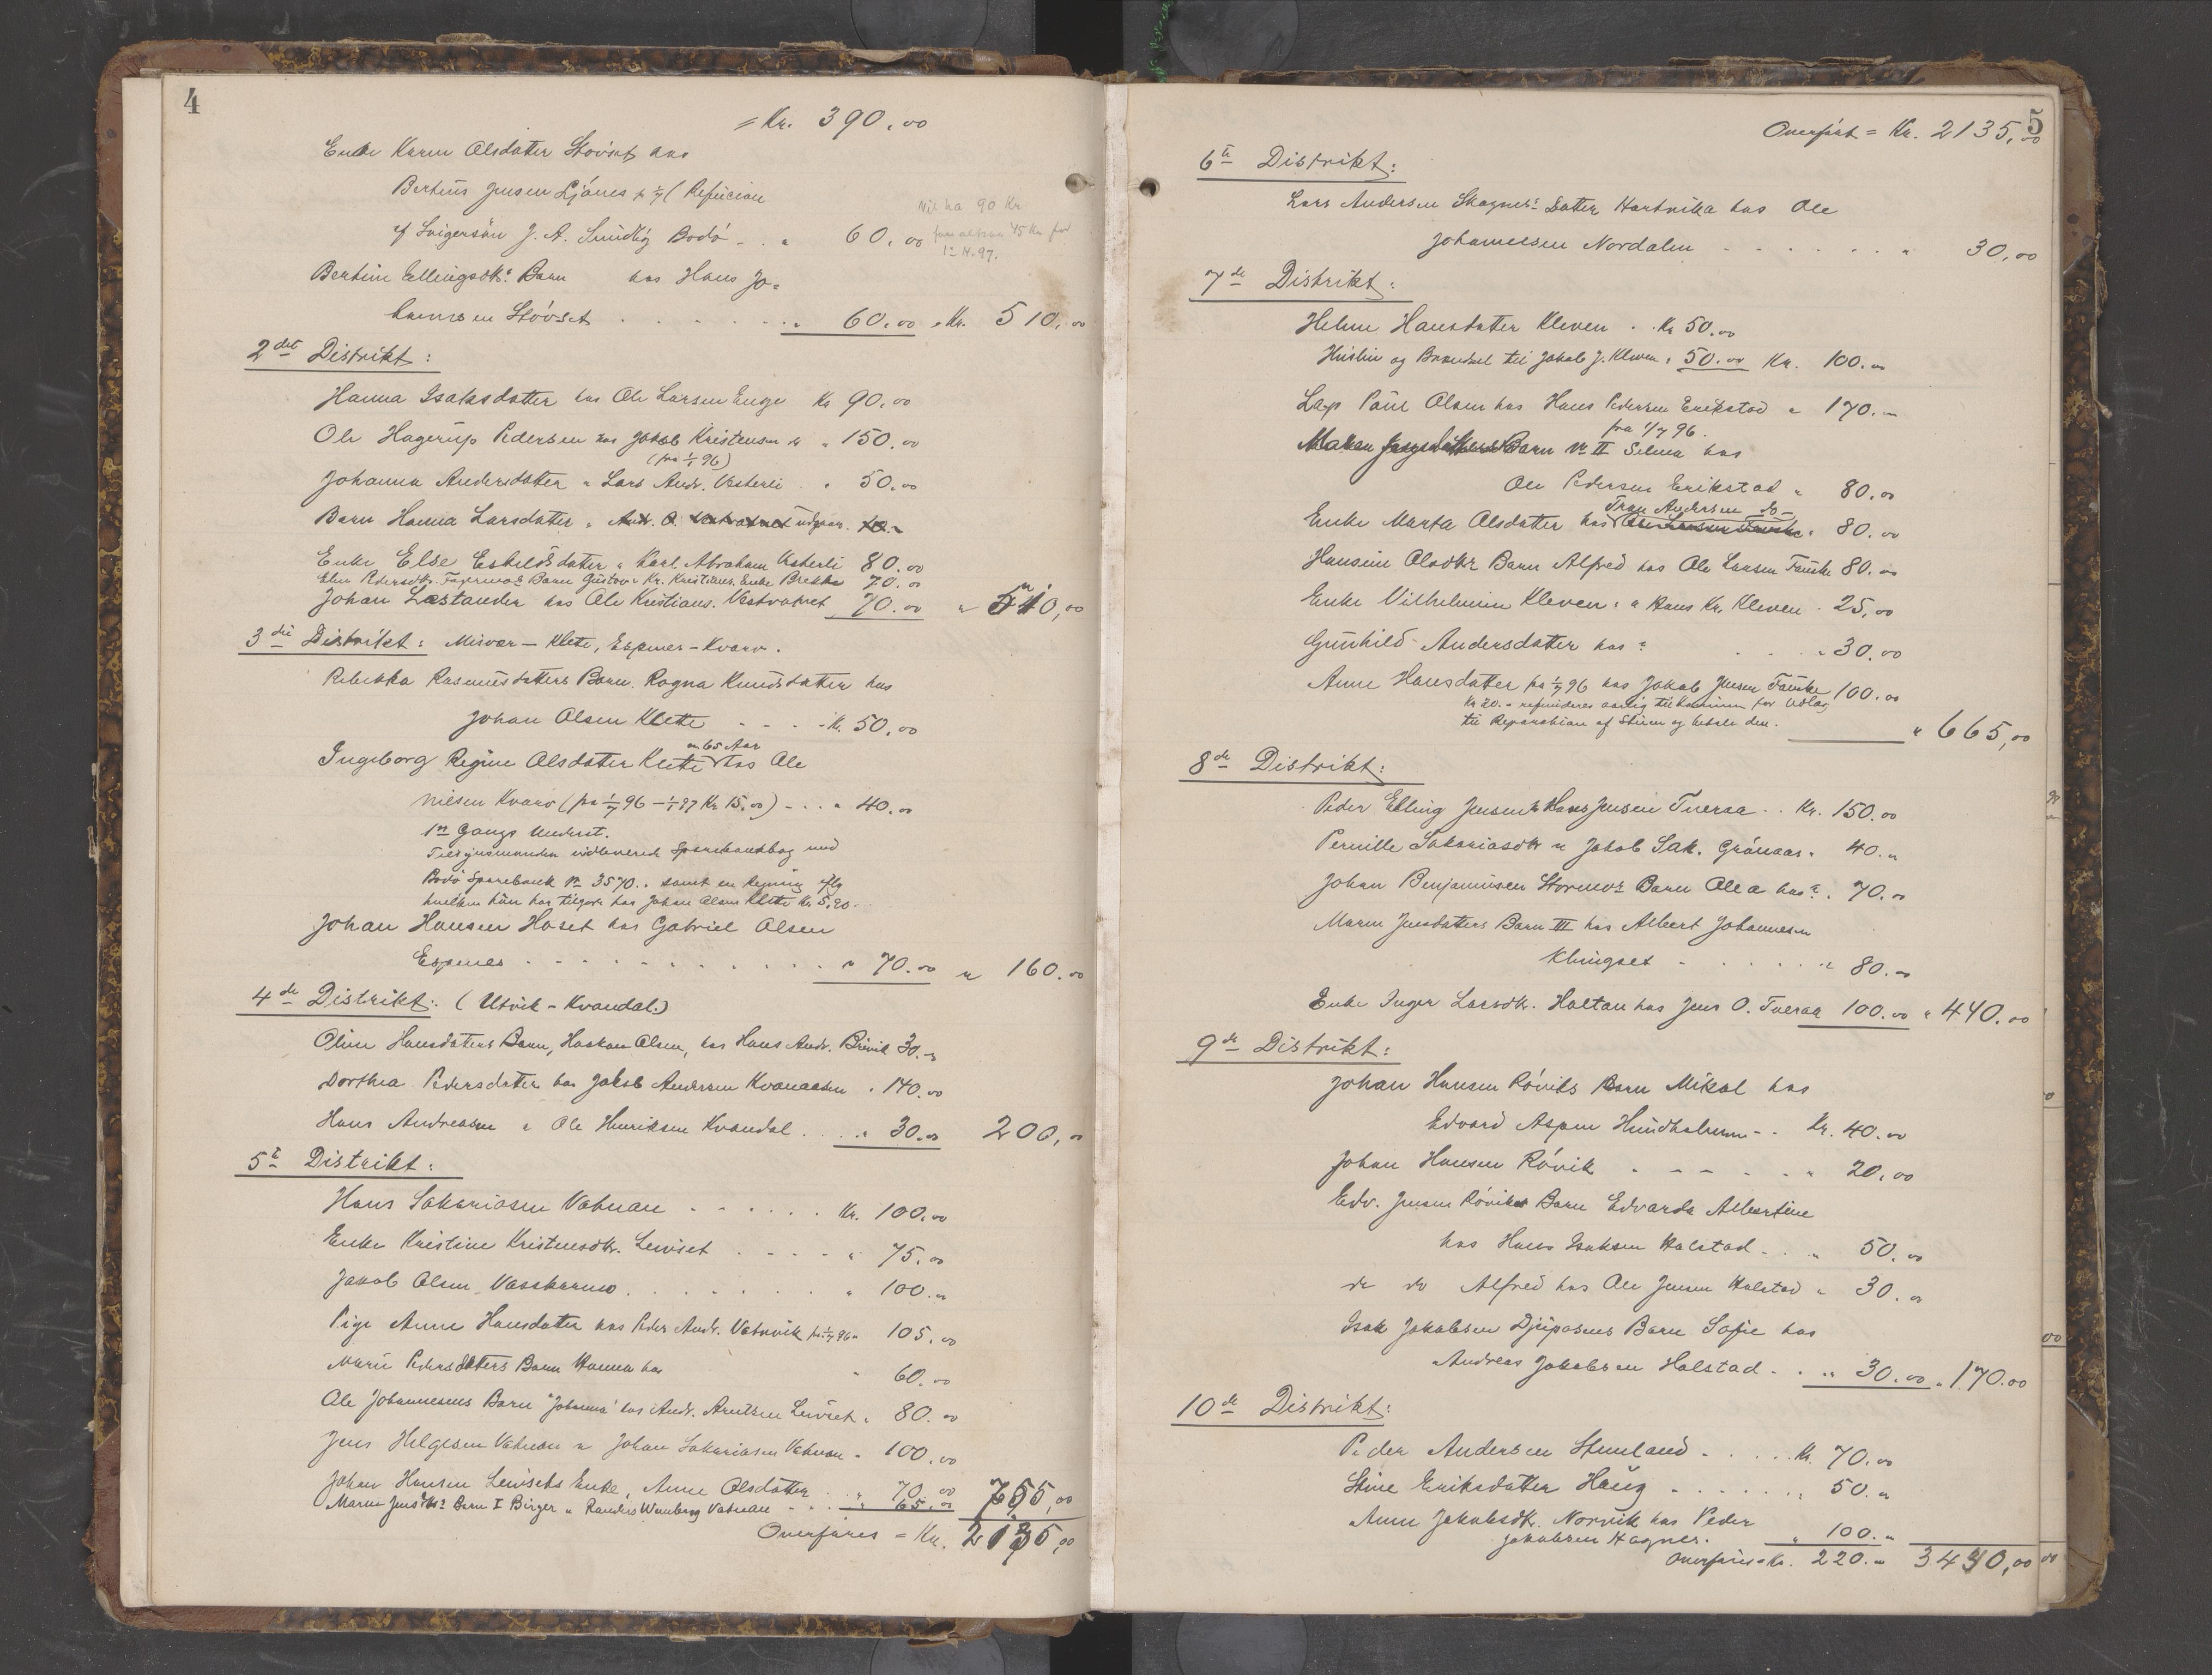 4
= Kr. 390.00
Enke Karen Olsdatter Stövset hos
Bertius Jensen Ljönes
af Svigersön J. A. Bodö - . " 60.00
Vil ha 90 Kr
45 Kr for
97.
Bertine Ellingsdtrs Barn hos Hans Jo=
hannesen Stövset . . . . . " 60.00 " Kr. 510.00
2det Distrikt:
Hanna Isaksdatter hos Ole Larsen Enge Kr 90.00
Ole Hagerup Pedersen hos Jakob Kristensen " 150.00
(fra 1/1 96)
Johanna Andersdatter " Lars Andr. Vesterli . " 50.00
Barn Hanna Larsdatter " Andr. O. Vestvatnet udgaar.
Enke Else Eskeldsdatter " Karl Abraham Vesterli 80.00
Elen Pedersdtr. Barn Gustav " Kr. Kristians. Enke Brekke 70.00
Johan Lestander hos Ole Kristians. Vestvatnet 70.00 " 510,00
3die Distrikt: Misvær - Klete, Espenes - Kvarv.
Rebekka Rasmusdatters Barn Ragna Knudsdatter hos
Johan Olsen Klette - - - - Kr. 50.00
Ingeborg Regine Olsdatter Klette hos Ole
65 Aar
Nilsen Kvarv (fra 1/7 96 - 1/1 97 Kr 15.00) - . . " 40.00
1ste Gangs Underst.
Tilsynsmanden indleverede Sparebankbog med
Bodö Sparebank No 3570.. samt en Regning iflg
hvilken han har tilgode hos Johan Olsen Klette Kr. 5,20.
Johan Hansen Hoset hos Gabriel Olsen
Espenes - - - - - - - - - - " 70.00 " 160.00
4de Distrikt: (Utvik - Kvandal.)
Oline Hansdatters Barn, Haakon Olsen, hos Hans Andr. Brevik 30.00
Dorthea Pedersdatter hos Jakob Andersen Kvanaasen " 140.00
Hans Andreasen " Ole Henriksen Kvandal . . . . " 30.00 200,00
5te Distrikt:
Hans Sakariasen Vatnan - - - - - Kr. 100.00
Enke Kristine Kristensdtr. Leivset . - - - " 75.00
Jakob Olsen Vasskarmo . . . . . . . " 100.00
Pige Anne Hansdatter hos Peder Andr. Vatnvik fra 1/7 96 " 105.00
Marie Pedersdatters Barn Hanna hos " 60.00
Ole Johannesens Barn "Johanna" hos Andr. Arntsen Leivset " 80.00
Jens Helgesen Vatnan " Johan Sakariasen Vatnan " 100.00
Johan Hansen Leivsets Enke, Anne Olsdatter . . " 70.00
Maren Jensdtrs Barn I Birger " Randis Wenberg Vatnan - . . . 65.00 755,00
Overföres = Kr. 2135,00
5
Overfört = Kr. 2135,00
6te Distrikt:
Lars Andersen Skagnes's Datter Hartvika hos Ole
Johannesen Nordalen - - - - - - " 30,00
7de Distrikt:
Helene Hansdatter Kleven . . Kr 50.00
Husleie og Brændsel til Jakob J. Kleven " 50.00 Kr. 100.00
Lap Paul Olsen hos Hans Pedersen Erikstad " 170.00
fra 1/7 96.
Maren Barn No II Selma hos
Ole Pedersen Erikstad " 80.00
Enke Marta Olsdatter hos Andersen do " 80.00
Hansine Olsdtrs Barn Alfred hos Ole Larsen Fauske 80.00
Enke Vilhelmine Kleven " Hans Kr. Kleven " 25,00
Gunhild Andersdatter hos ? . . . " 30.00
Anne Hansdatter fra 1/7 96 hos Jakob Jensen Fauske 100.00
Kr 20.- refunderes aarlig til Kommunen for Udlæg
til Reparation af Stuen og betale den.
" 665,00
8de Distrikt:
Peder Elling Jensen hos Hans Jensen Tueraa . . Kr. 150.00
Pernille Sakariasdtr " Jakob Sak. Grönaas " 40.00
Johan Benjaminsen Stormos Barn Olea hos ? . 70.00
Maren Jensdatters Barn III hos Albert Johannesen
Klungset - - . . . . " 80.00
Enke Inger Larsdtr. Holtan hos Jens O. Tueraa 100.00 " 440.00
9de Distrikt:
Johan Hansen Röviks Barn Mikal hos
Edvard Aspen Hundholmen - - Kr. 40.00
Johan Hansen Rövik - - - - - " 20.00
Edv. Jensen Röviks Barn Edvarda Albertine
hos Hans Isaksen Halstad . . " 50.00
do do Alfred hos Ole Jensen Halstad " 30.00
Isak Jakobsen Djupaasens Barn Sofie hos
Andreas Jakobsen Halstad . . " 30.00 " 170.00
10de Distrikt:
Peder Andersen Stemland - . . . . Kr. 70.00
Stine Eriksdatter Haug - - - - - " 50.00
Anne Jakobsdtr. Norvik hos Peder
Jakobsen Hagnes. " 100.00
Overföres Kr. 220.00 3430,00